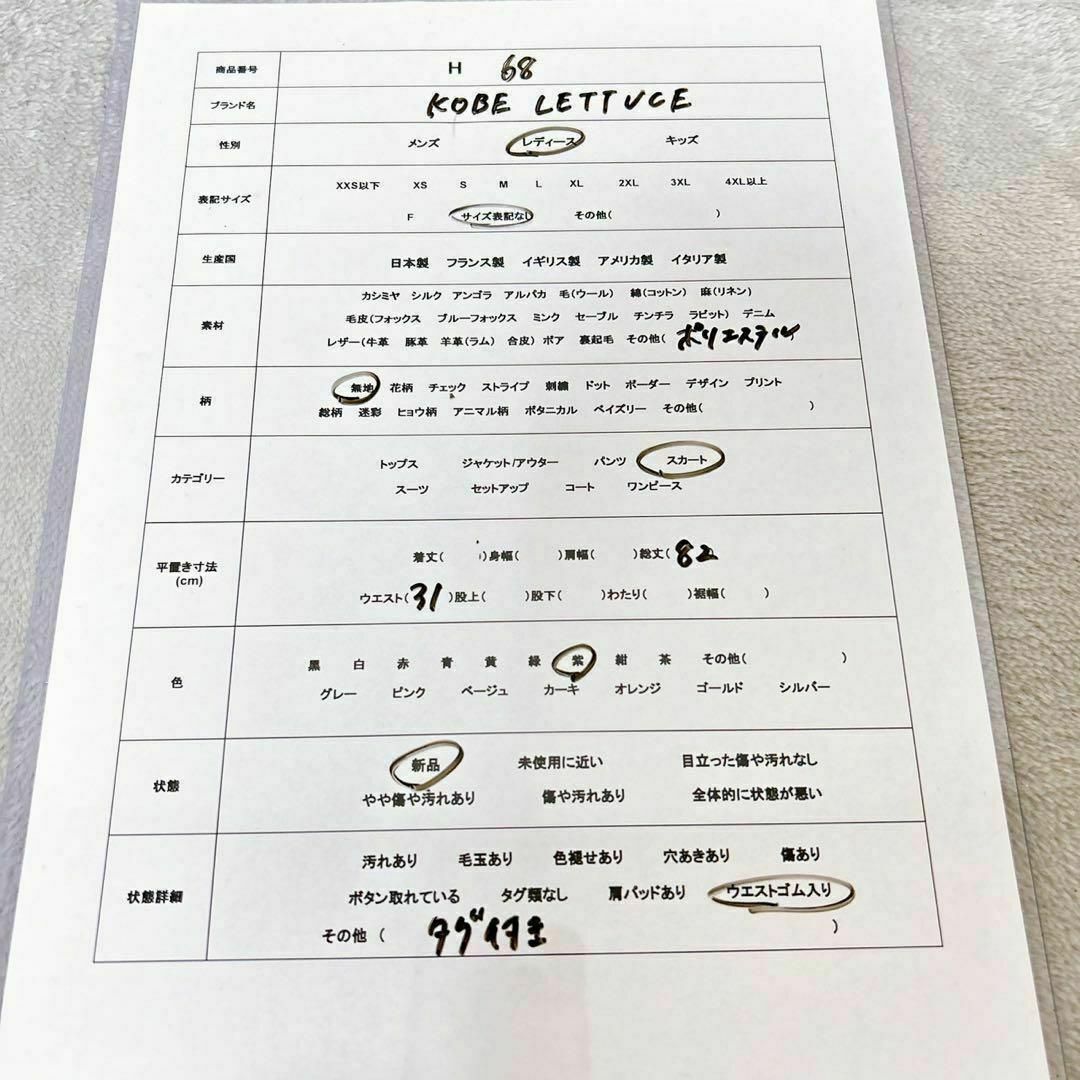 商品番号 H 68
ブランド名 KOBE LETTUCE
性別 メンズ レディース キッズ
表記サイズ
XXS以下 XS S M L XL 2XL 3XL 4XL以上
F サイズ表記なし その他( )
生産国 日本製 フランス製 イギリス製 アメリカ製 イタリア製
素材
カシミヤ シルク アンゴラ アルパカ 毛(ウール) 綿(コットン) 麻(リネン)
毛皮(フォックス ブルーフォックス ミンク セーブル チンチラ ラビット) デニム
レザー(牛革 豚革 羊革(ラム) 合皮) ボア 裏起毛 その他( ポリエステル
柄
無地 花柄 チェック ストライプ 刺繍 ドット ボーダー デザイン プリント
総柄 迷彩 ヒョウ柄 アニマル柄 ボタニカル ペイズリー その他( )
カテゴリー
トップス ジャケット/アウター パンツ スカート
スーツ セットアップ コート ワンピース
平置き寸法
(cm)
着丈( )身幅( )肩幅( )総丈( 82
ウエスト( 31 )股上( )股下( )わたり( )裾幅( )
色
黒 白 赤 青 黄 緑 紫 紺 茶 その他( )
グレー ピンク ベージュ カーキ オレンジ ゴールド シルバー
状態
新品 未使用に近い 目立った傷や汚れなし
やや傷や汚れあり 傷や汚れあり 全体的に状態が悪い
状態詳細
汚れあり 毛玉あり 色褪せあり 穴あきあり 傷あり
ボタン取れている タグ類なし 肩パッドあり ウエストゴム入り
その他 ( タグ付き )